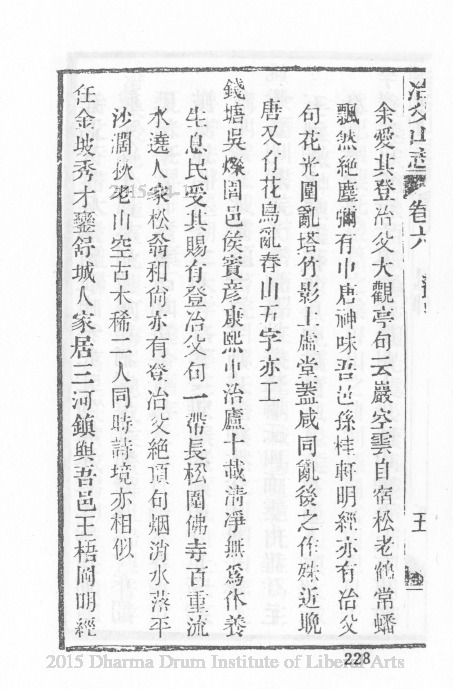 冶父山志 卷六 五
余愛其登冶父大觀亭句云巖空雲自宿松老鶴常蟠
飄然絶塵彌有中唐神味吾邑孫桂軒明經亦有冶父
句花光圍亂塔竹影上虛堂蓋咸同亂後之作殊近晚
唐又有花鳥亂春山五字亦工
錢塘吳燦園邑侯賓彦康熙中治廬十載清凈無爲休養
生息民受其賜有登冶父句一帶長松圍佛寺百重流
水遶人家松翁和尙亦有登冶父絶頂句烟消水落平
沙濶秋老山空古木稀二人同時詩境亦相似
任金坡秀才鑾舒城人家居三河鎮與吾邑王梧岡明經
228
2015 Dharma Drum Institute of Liberal Arts